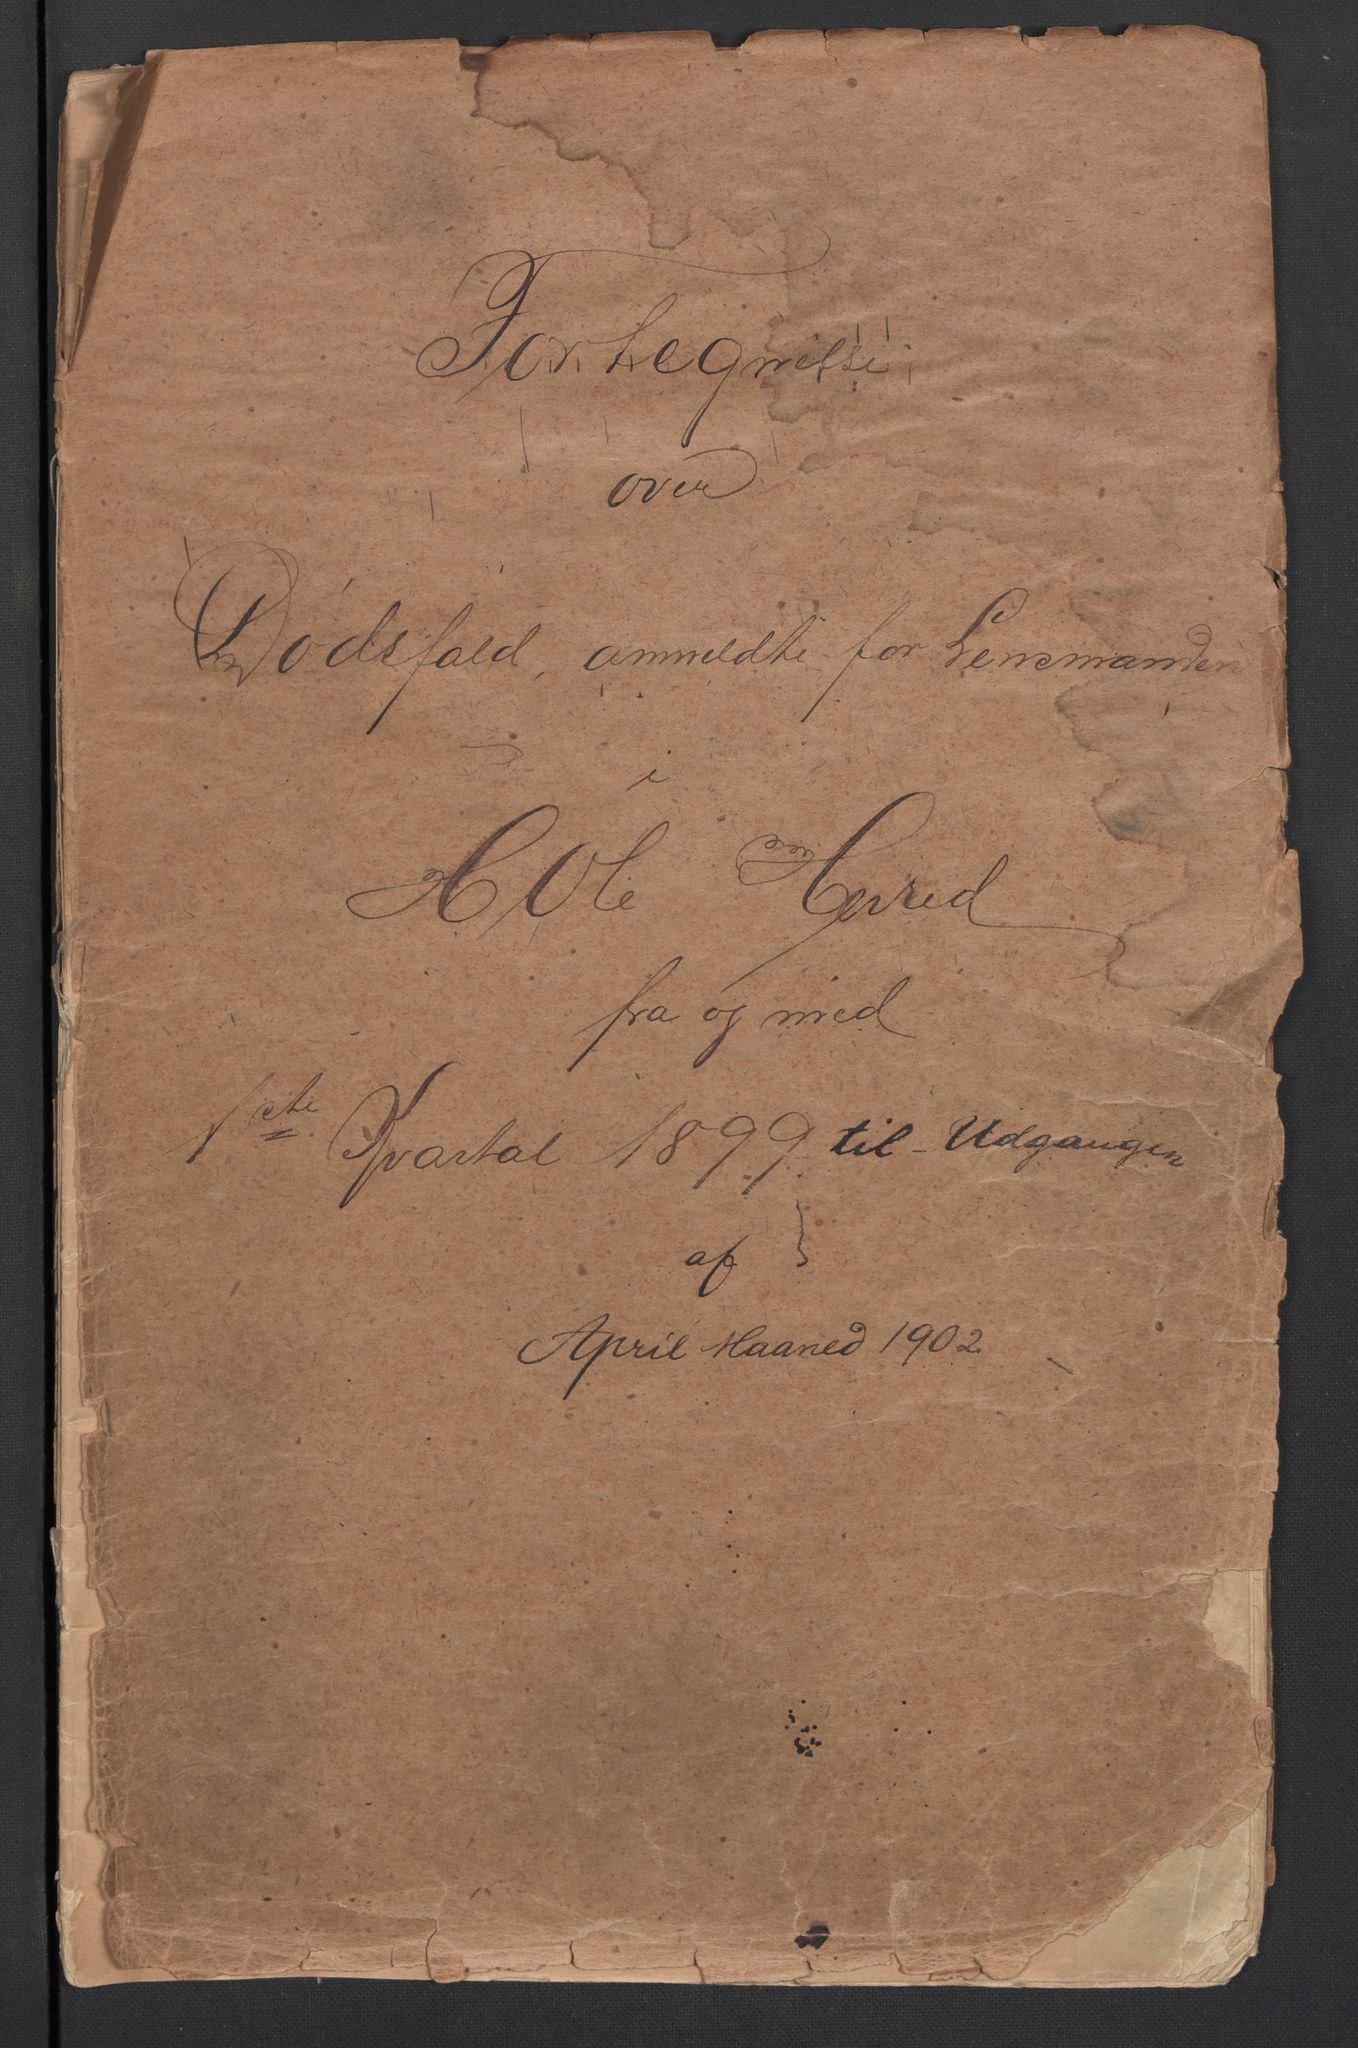 Fortegnelse
over
Dødsfald, anmeldte for Lensmanden
i
Hole Herred
fra og med
1ste Kvartal 1899 til Udgangen
af
April Maaned 1902.